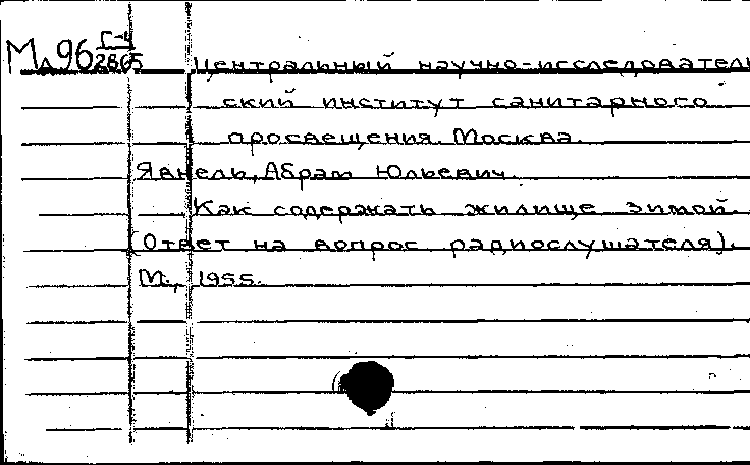 Мл 96 Г-4/2865
Центральный научно-исследователь
ский институт санитарного
просвещения. Москва.
Явнель, Абрам Юльевич.
Как содержать жилище зимой
(Ответ на вопрос радиослушателя).
М., 1955.